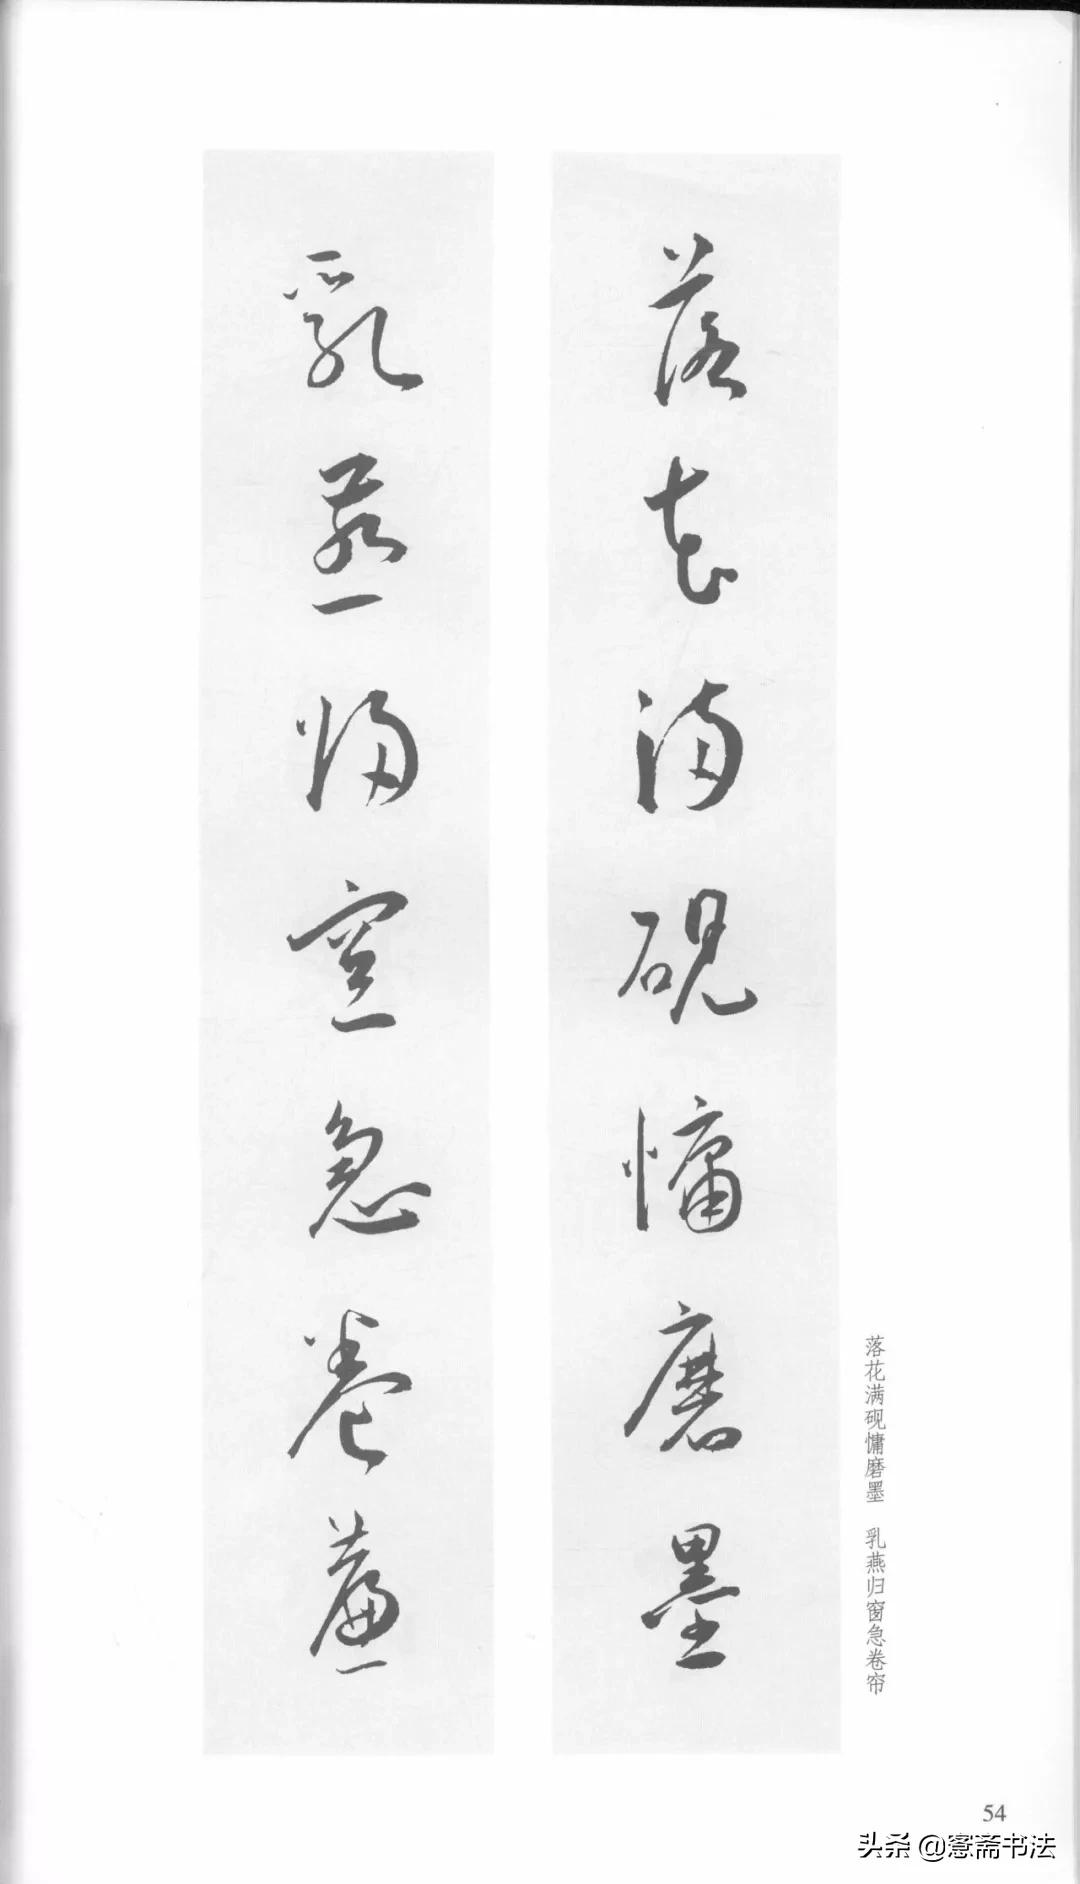 落花满砚慵磨墨
乳燕归窗急卷帘
落花满砚慵磨墨 乳燕归窗急卷帘
54
头条 @窓斋书法